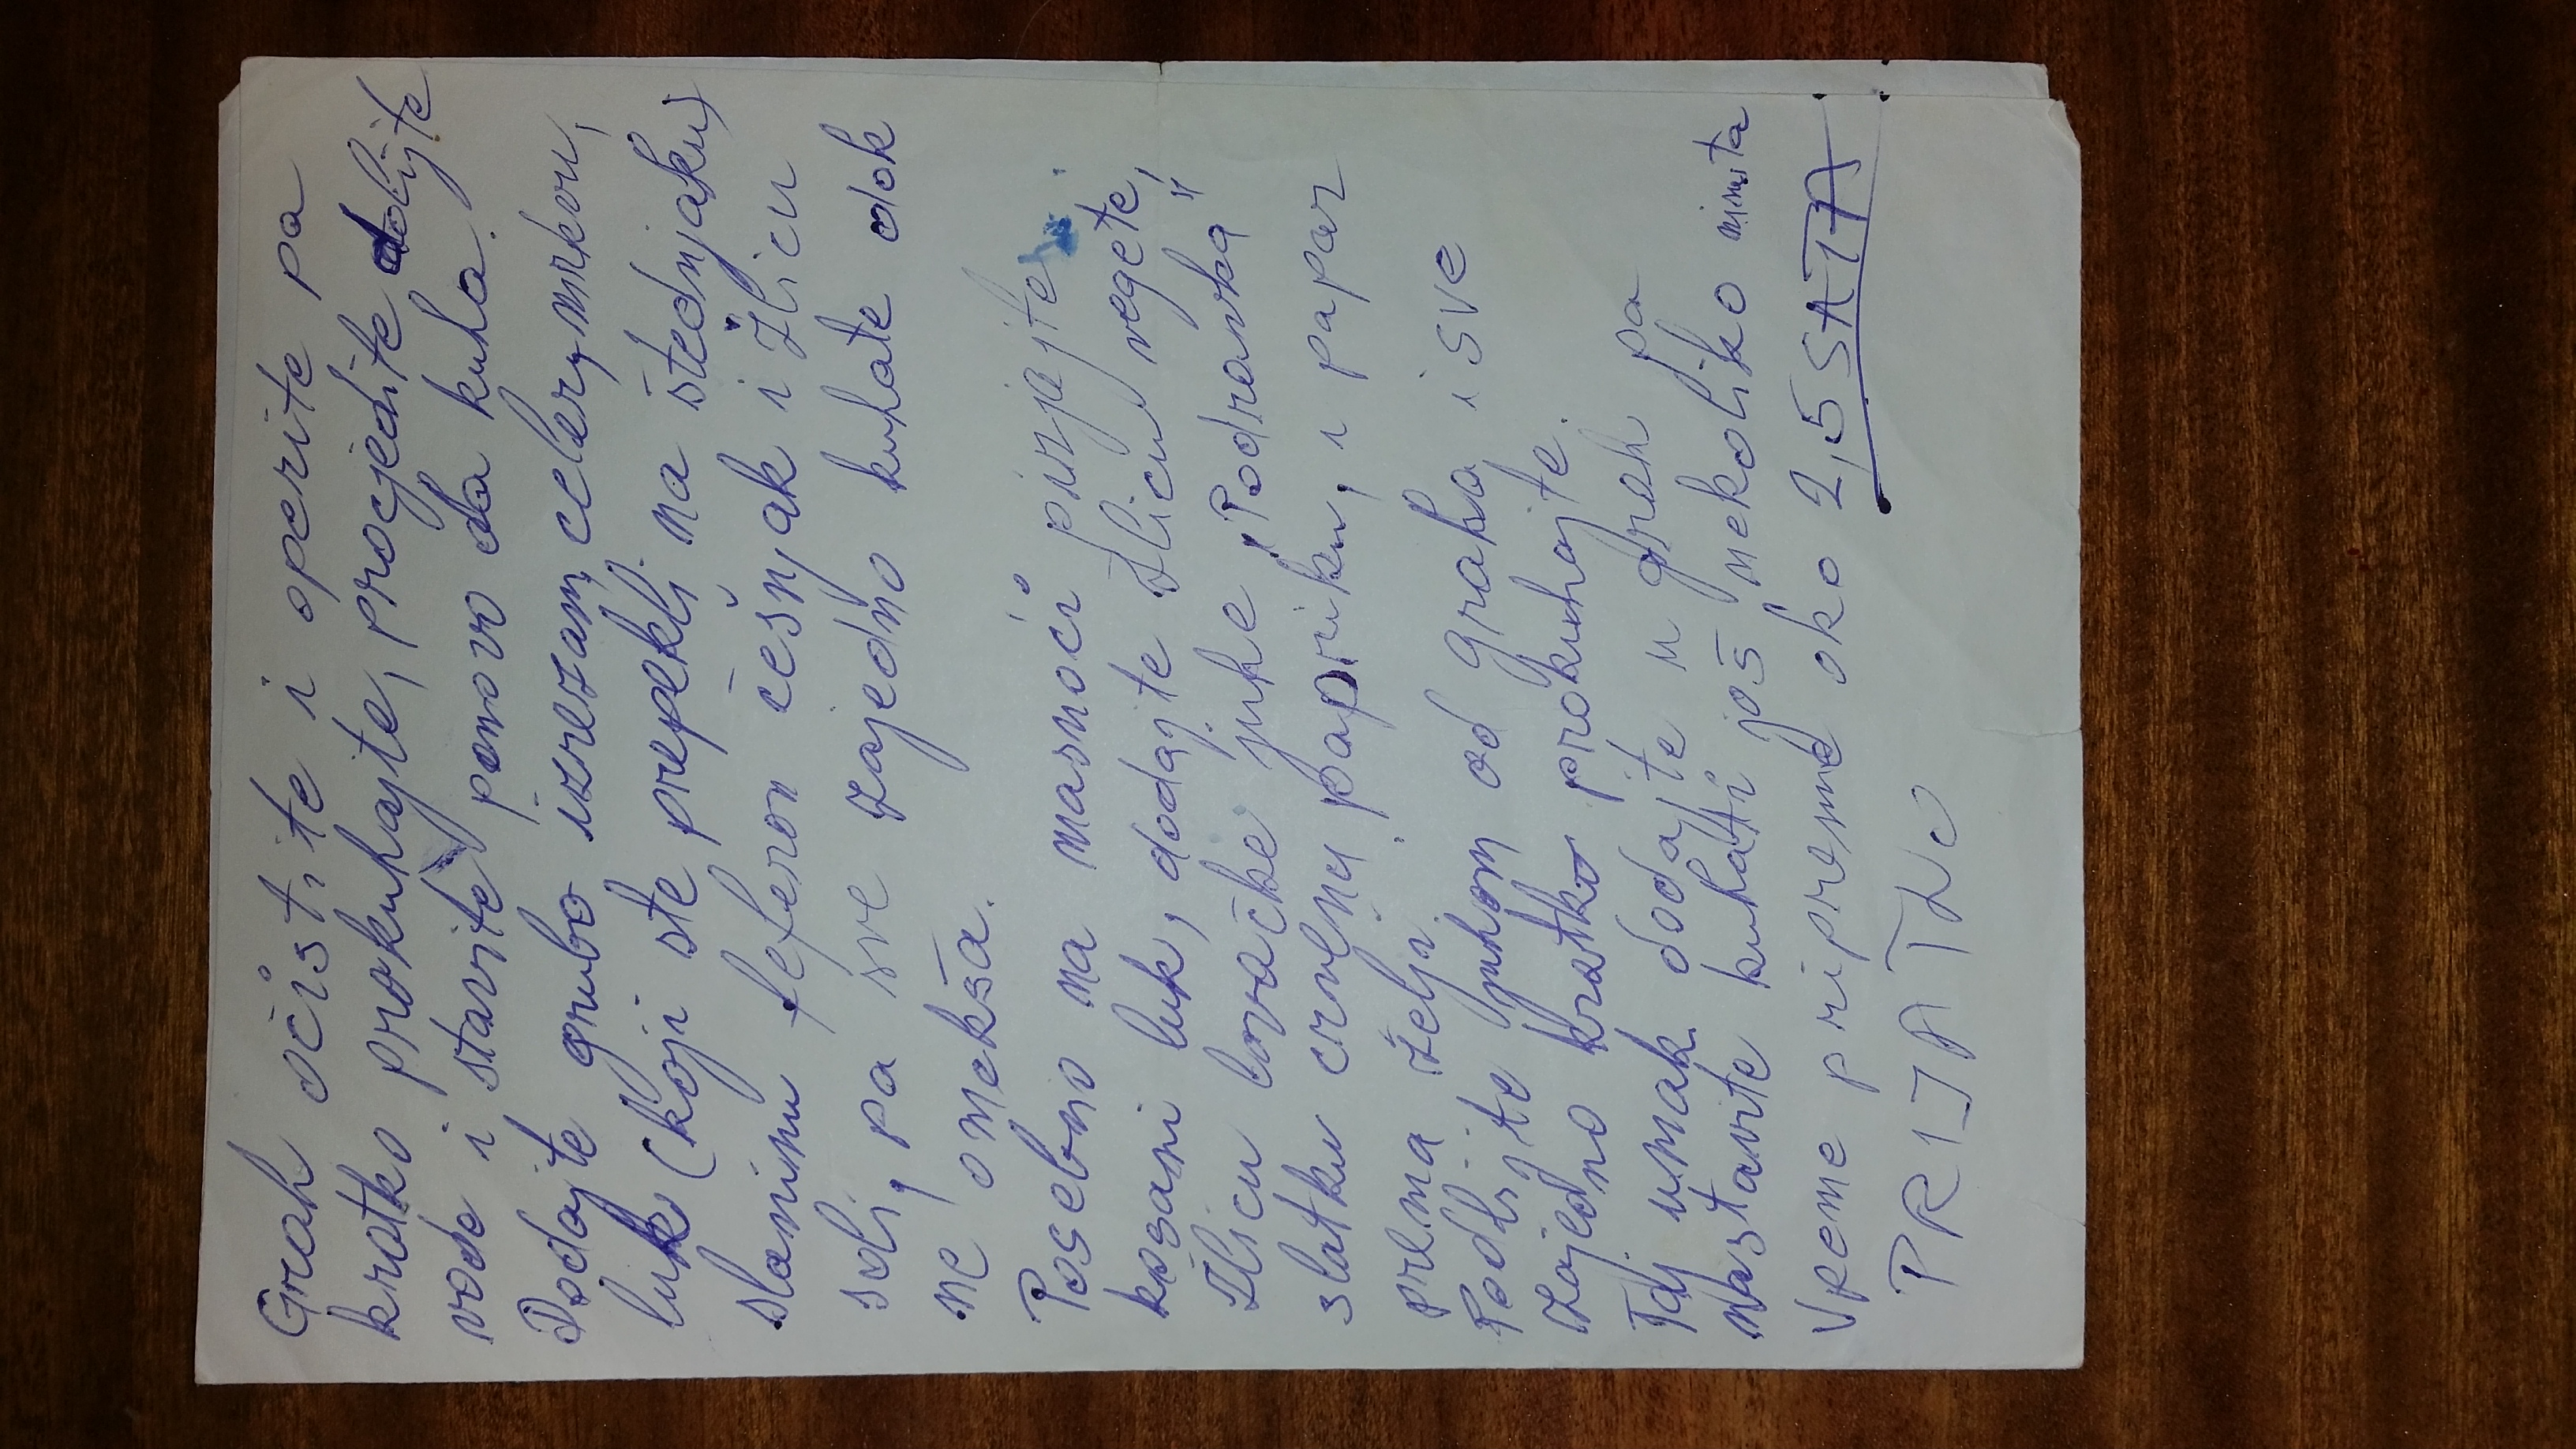 Grah očistite i operite pa
kratko prokuhajte, procjedite dolijte
vode i stavite ponovo da kuha.
Dodajte grubo izrezam, celer, mrkvu,
luk (koji ste prepekli na štednjaku)
slaninu feferon češnjak i žlicu
soli, pa sve zajedno kuhate dok
ne omekša.
Posebno na masnoći pirjajte
kosani luk, dodajte žlicu vegete,
žlicu lovačke juhe „Podravka"
slatku crvenu papriku, i papar
prema želji.
Podlijte juhom od graha i sve
zajedno kratko prokuhajte.
Taj umak dodajte u grah pa
nastavite kuhati još nekoliko minuta
Vreme pripreme oko 2,5 SATA
PRIJATNO